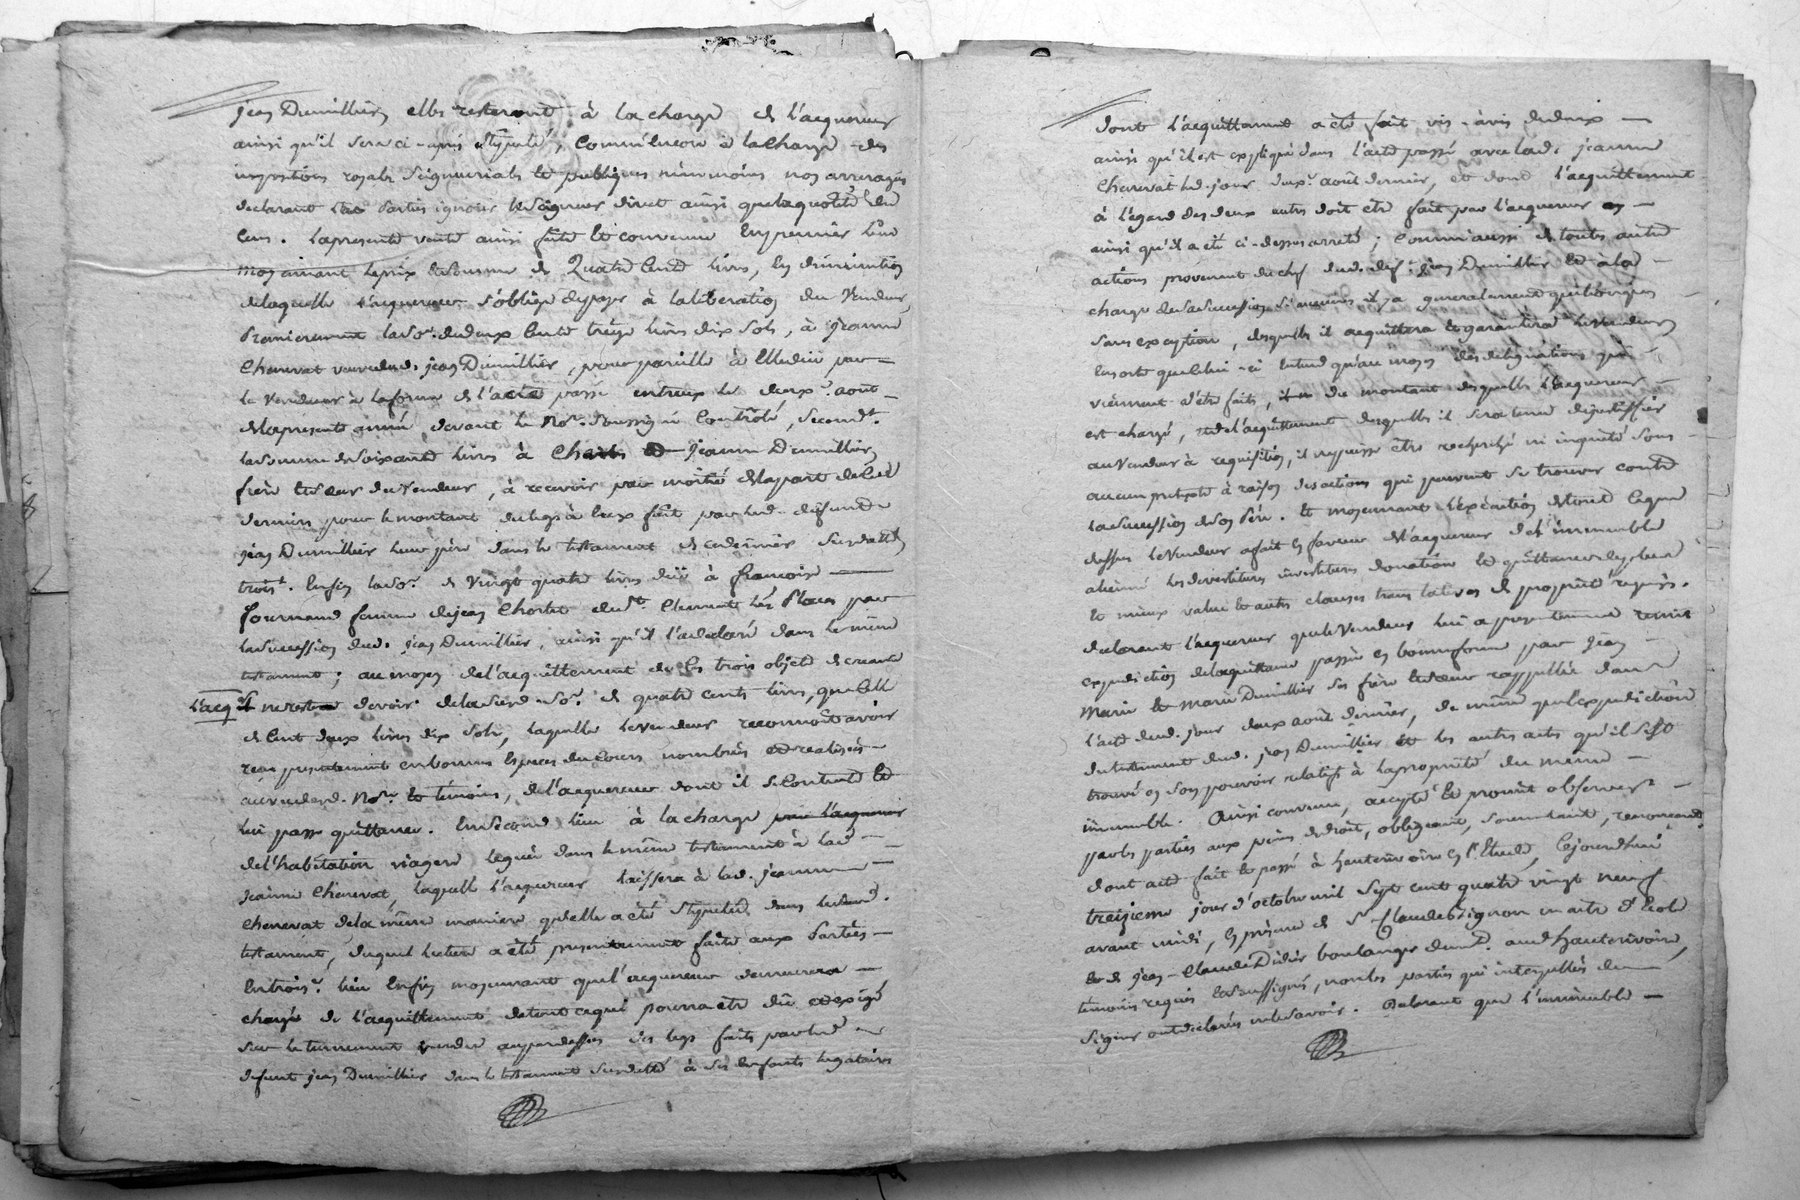 jean Dumillier, elles resteront à la charge de l'acquereur
ainsi qu'il sera ci-après stypulé, comm'encore à la charge des
impositions royales seigneuriales et publiques néanmoins non arreragés
declarant les parties ignorer le seigneur direct ainsi que la quotité du
cens. La presente vente ainsi faite et convenue en premier lieu
moyennant le prix et somme de Quatre cents livres, en diminution
de laquelle l'acquereur s'oblige de payer à la liberation du Vendeur,
Premierement la so.e de deux cents treize livres dix sols, à jeanne
Chenevat veuve dud. jean Dumillier, pour pareille à elle due par
le Vendeur à la forme de l'acte passé entreux le deux.e août
de la presente année devant le No.re soussigné Contrôlé, second.t
la somme de soixante livres à Charles et jeanne Dumillier,
frère et sœur du Vendeur, à recevoir par moitié de la part de led.
dernier pour le montant du legs à eux fait par led. défunt
jean Dumillier leur père dans le testament de ce dernier susdatté,
trois.t Enfin la so.e de Vingt quatre livres due à françoise
fournand femme de jean Chortet de St. Clement les Places par
la succession dud. jean Dumillier, ainsi qu'il l'a declaré dans le même
testament; au moyen de l'acquittement de ces trois objets de creance
l'acq.r ne reste devoir de lad. so.e de quatre cents livres, que celle
de cent deux livres dix sols, laquelle le vendeur reconnoît avoir
reçu presentement en bonnes Especes du cours nombrées et realisées
au vu desd. No.re et témoins, de l'acquereur dont il se contente et
lui passe quittance. En second lieu à la charge par l'acquereur
de l'habitation viagere leguée dans le même testament à lad.
jeanne Chenevat, laquelle l'acquereur laissera à lad. jeanne
Chenevat de la même maniere qu'elle a été stypulée dans led.
testament, duquel lecture a été presentement faite aux Parties
En trois.e lieu Enfin moyennant que l'acquereur demeurera
chargé de l'acquittement de tout ce qui pourra être dû et exigé
sur le tenement vendu au pardessus des legs faits par led.
défunt jean Dumillier dans le testament susdatté à ses Enfants legataires
dont l'acquittement a été fait vis-à-vis de deux
ainsi qu'il est expliqué dans l'acte passé avec lad. jeanne
Chenevat led. jour deux.e août dernier, et dont l'acquittement
à l'égard des deux autres doit être fait par l'acquereur
ainsi qu'il a été ci-dessus arreté; comm'aussi de toutes autres
actions provenant du chef dud. def. jean Dumillier et à la
charge de sa succession si aucunes il y a generalement quelconques
sans exception, desquelles il acquittera et garantira le Vendeur
Ensorte que celui-ci Entend qu'au moyen des delegations qui
viennent d'être faites, du montant desquelles l'acquereur
est chargé, et de l'acquittement desquelles il sera tenu de justiffier
au Vendeur à requisition, il ne puisse être recherché ni inquiété sous
aucun pretexte à raison des actions qui peuvent se trouver contre
la succession de son Père. Et moyennant l'exécution de tout ce que
dessus le Vendeur a fait en faveur de l'acquereur de l'immeuble
aliené les devestitures investitures donation et quittance de plus
et mieux value et autres clauses translatives de propriété requises.
declarant l'acquereur que le Vendeur lui a presentement remis
expedition de la quittance passée en bonne forme par jean
Marie et marie Dumillier ses frère et sœur rappellée dans
l'acte dud. jour deux août dernier, de même que l'expedition
du testament dud. jean Dumillier et les autres actes qu'il s'est
trouvé en son pouvoir relatifs à la propriété du même
immeuble. Ainsi convenu, accepté et promis observer
par les parties aux peines de droit, obligeant, soumettant, renonçant,
dont acte fait et passé à hauterivoire en l'Etude, Cejourd'hui
treizieme jour d'octobre mil sept cent quatre vingt neuf
avant midi, en présence de Sr. Claude Brignon maitre d'Ecole
et de jean-Claude Didier boulanger dem.t aud. hauterivoire,
témoins requis et soussignés, non les parties qui interpellées de
signer ont declaré ne le savoir. Declarant que l'immeuble